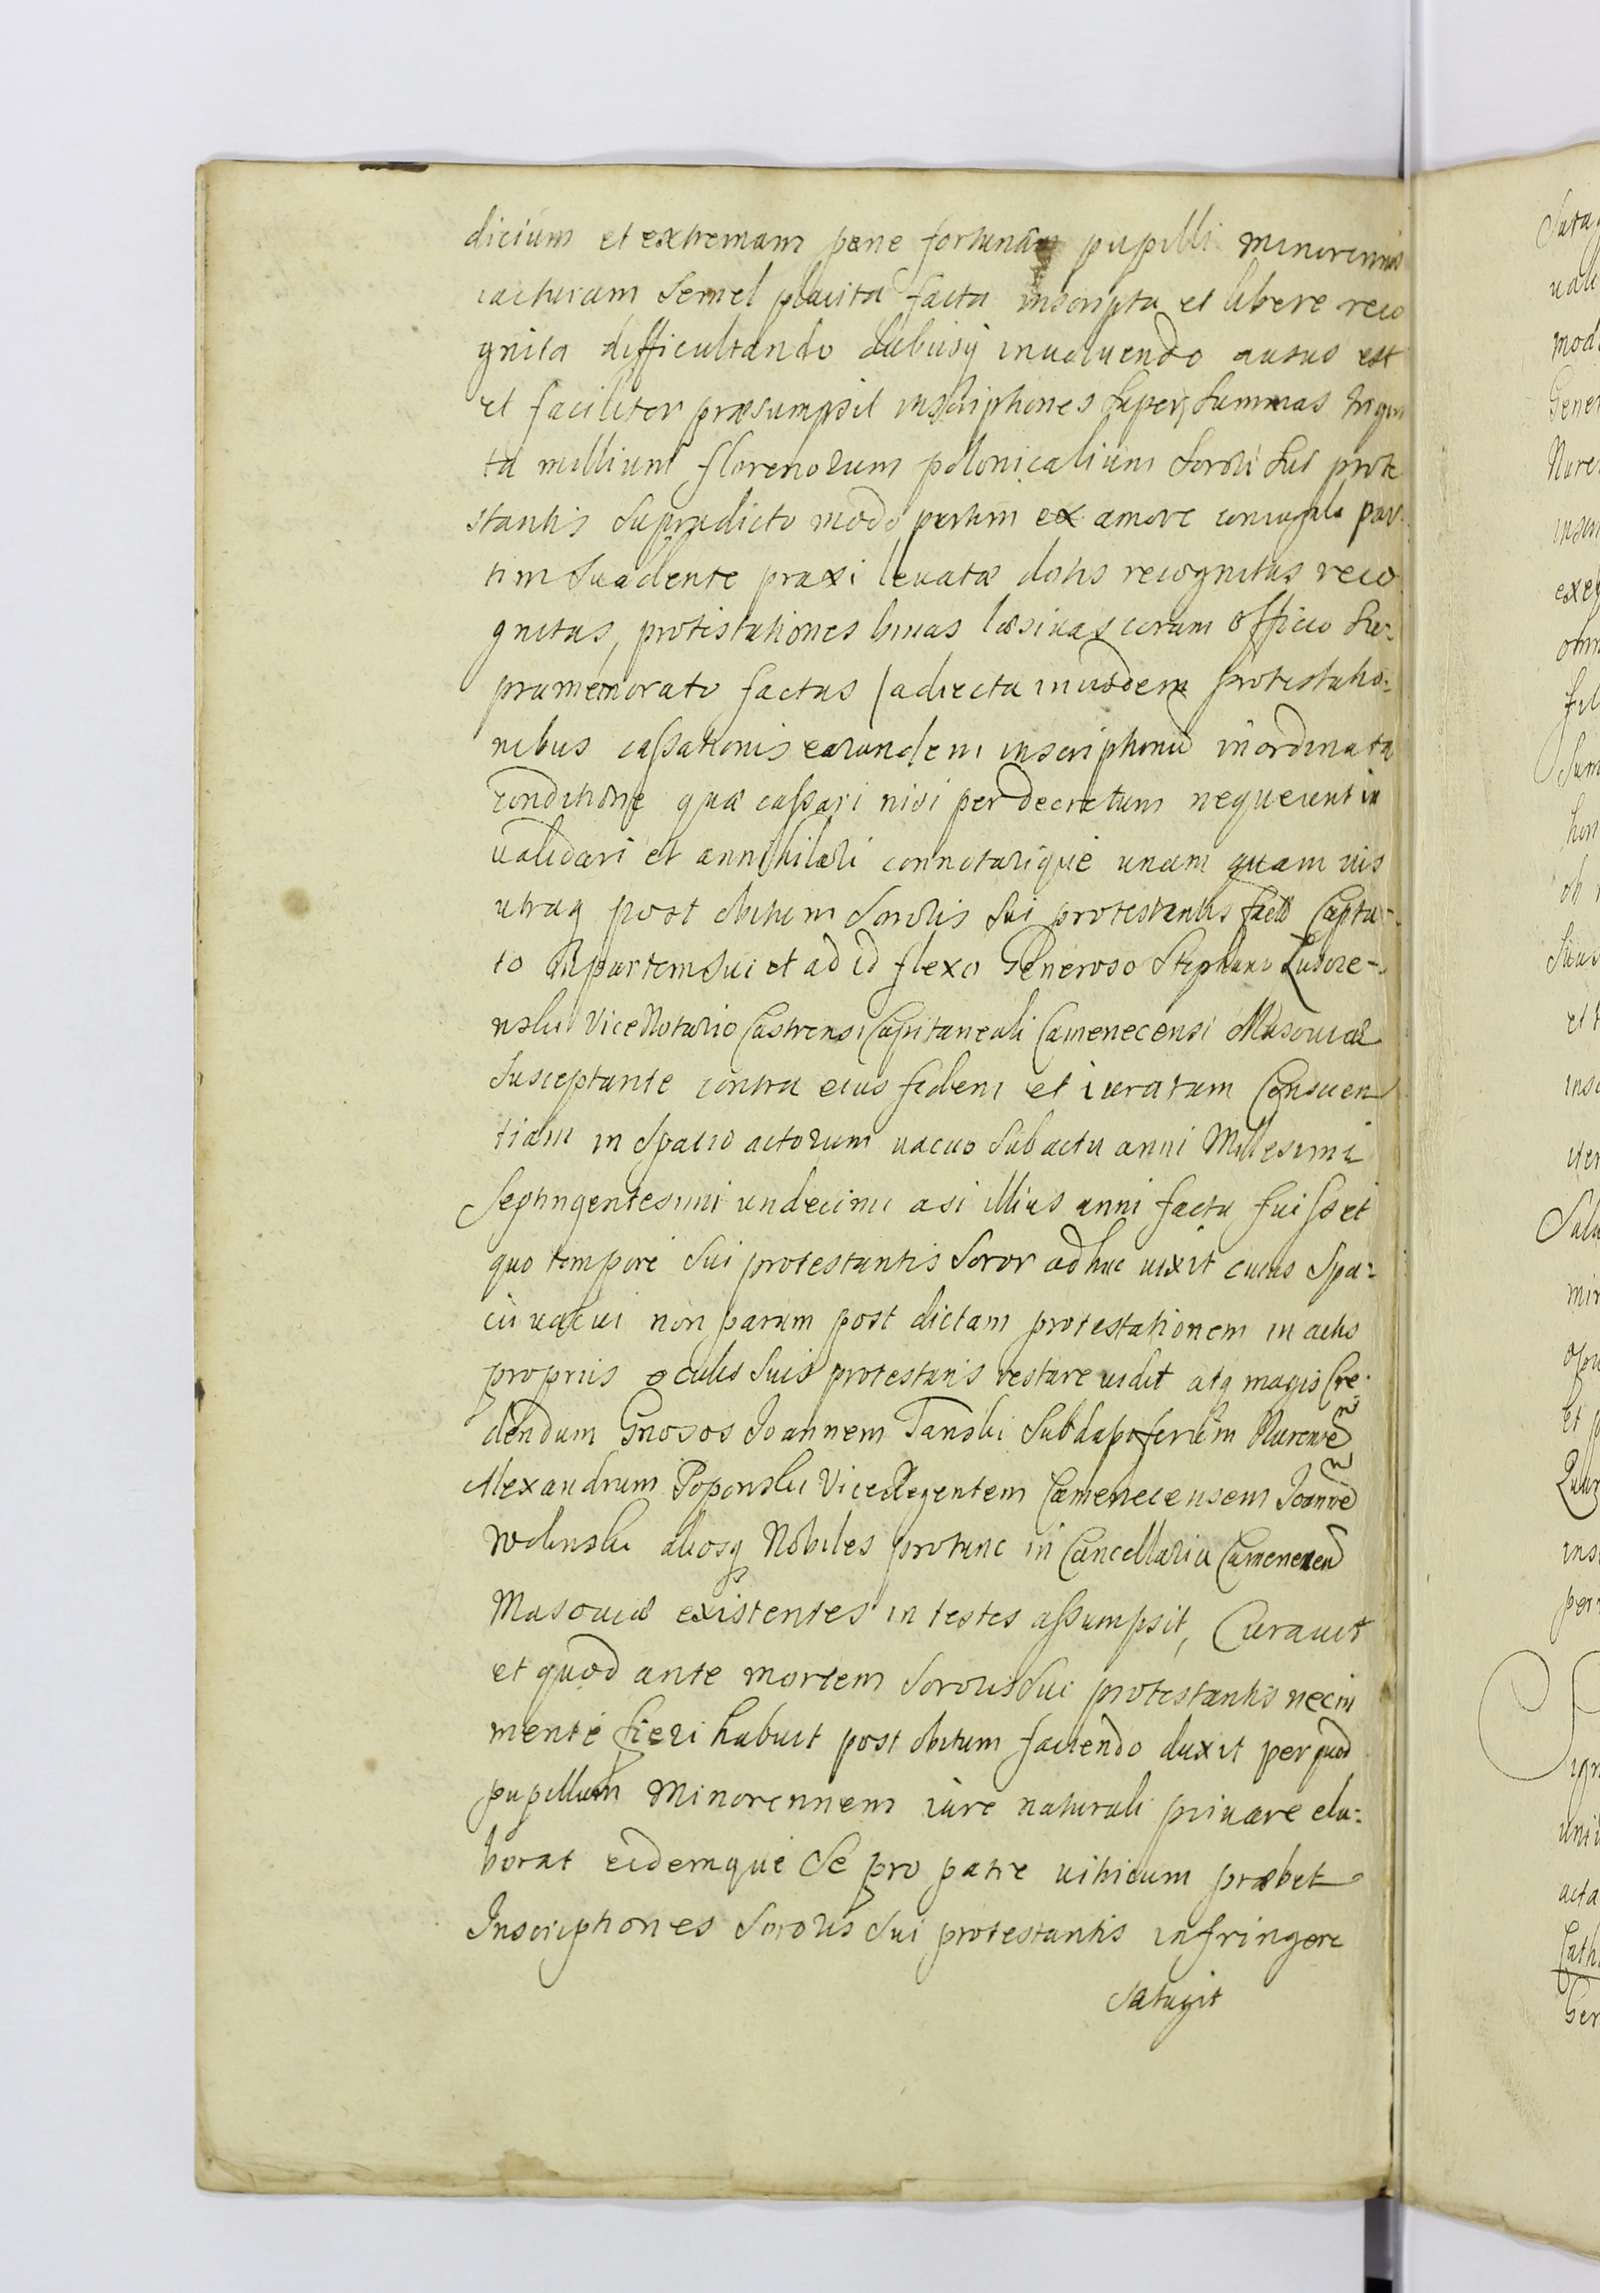 dicium et extremam pene fortunam pupilli minorennis
iacturam semel placita facta inscripta et libere reco
gnita difficultando dubiisq inuoluendo ausus est
et faciliter præsumpsit inscriptiones superq summas trigin
ta millium florenorum polonicalium sorori sui prote
stantis supradicto modo partim ex amore coniugali par
tim suadente praxi leuatæ dotis recognitas reco
gnitas, protestationes binas læsiuas coram officio su-
pramemorato factas (adiecta in iisdem protestatio-
nibus cassationis earundem inscriptionũ inordinata
conditione quæ cassari nisi per decretum nequeunt in
ualidari et annihilari connotarique unam quam uis
utraq post obitum sororis sui protestantis facto Capta-
to in partem sui et ad id flexo Generoso Stephano
nski Vice Notario Castrensi Capitaneali Camenecensi Masouiæ
susceptante contra eius fidem et iuratam Conscien
tiam in spatio actorum uacuo sub actu anni Millesimi
Septingentesimi undecimi asi illius anni facta fuisset
quo tempore sui protestantis soror adhuc uixit cuius spa-
cii uacui non parum post dictam protestationem in actis
propriis oculis suis protestans restare uidit atq magis Cre-
dendum Gnosos Joannem Tanski Subdapiferũm Nurensẽ
Alexandrum Poponski ViceRegentem Camenecensem Joannẽ
Wolinski aliosq Nobiles protunc in Cancellaria Camenecen
Masouiæ existentes in testes assumpsit, Curauit
et quod ante mortem sororis sui protestantis nec in
mente fieri habuit post obitum faciendo duxit per quod
pupillum Minorennem iure naturali priuare ela-
borat eidemque se pro patre uitricum præbet
Inscriptiones sororis sui protestantis infringere
satagit